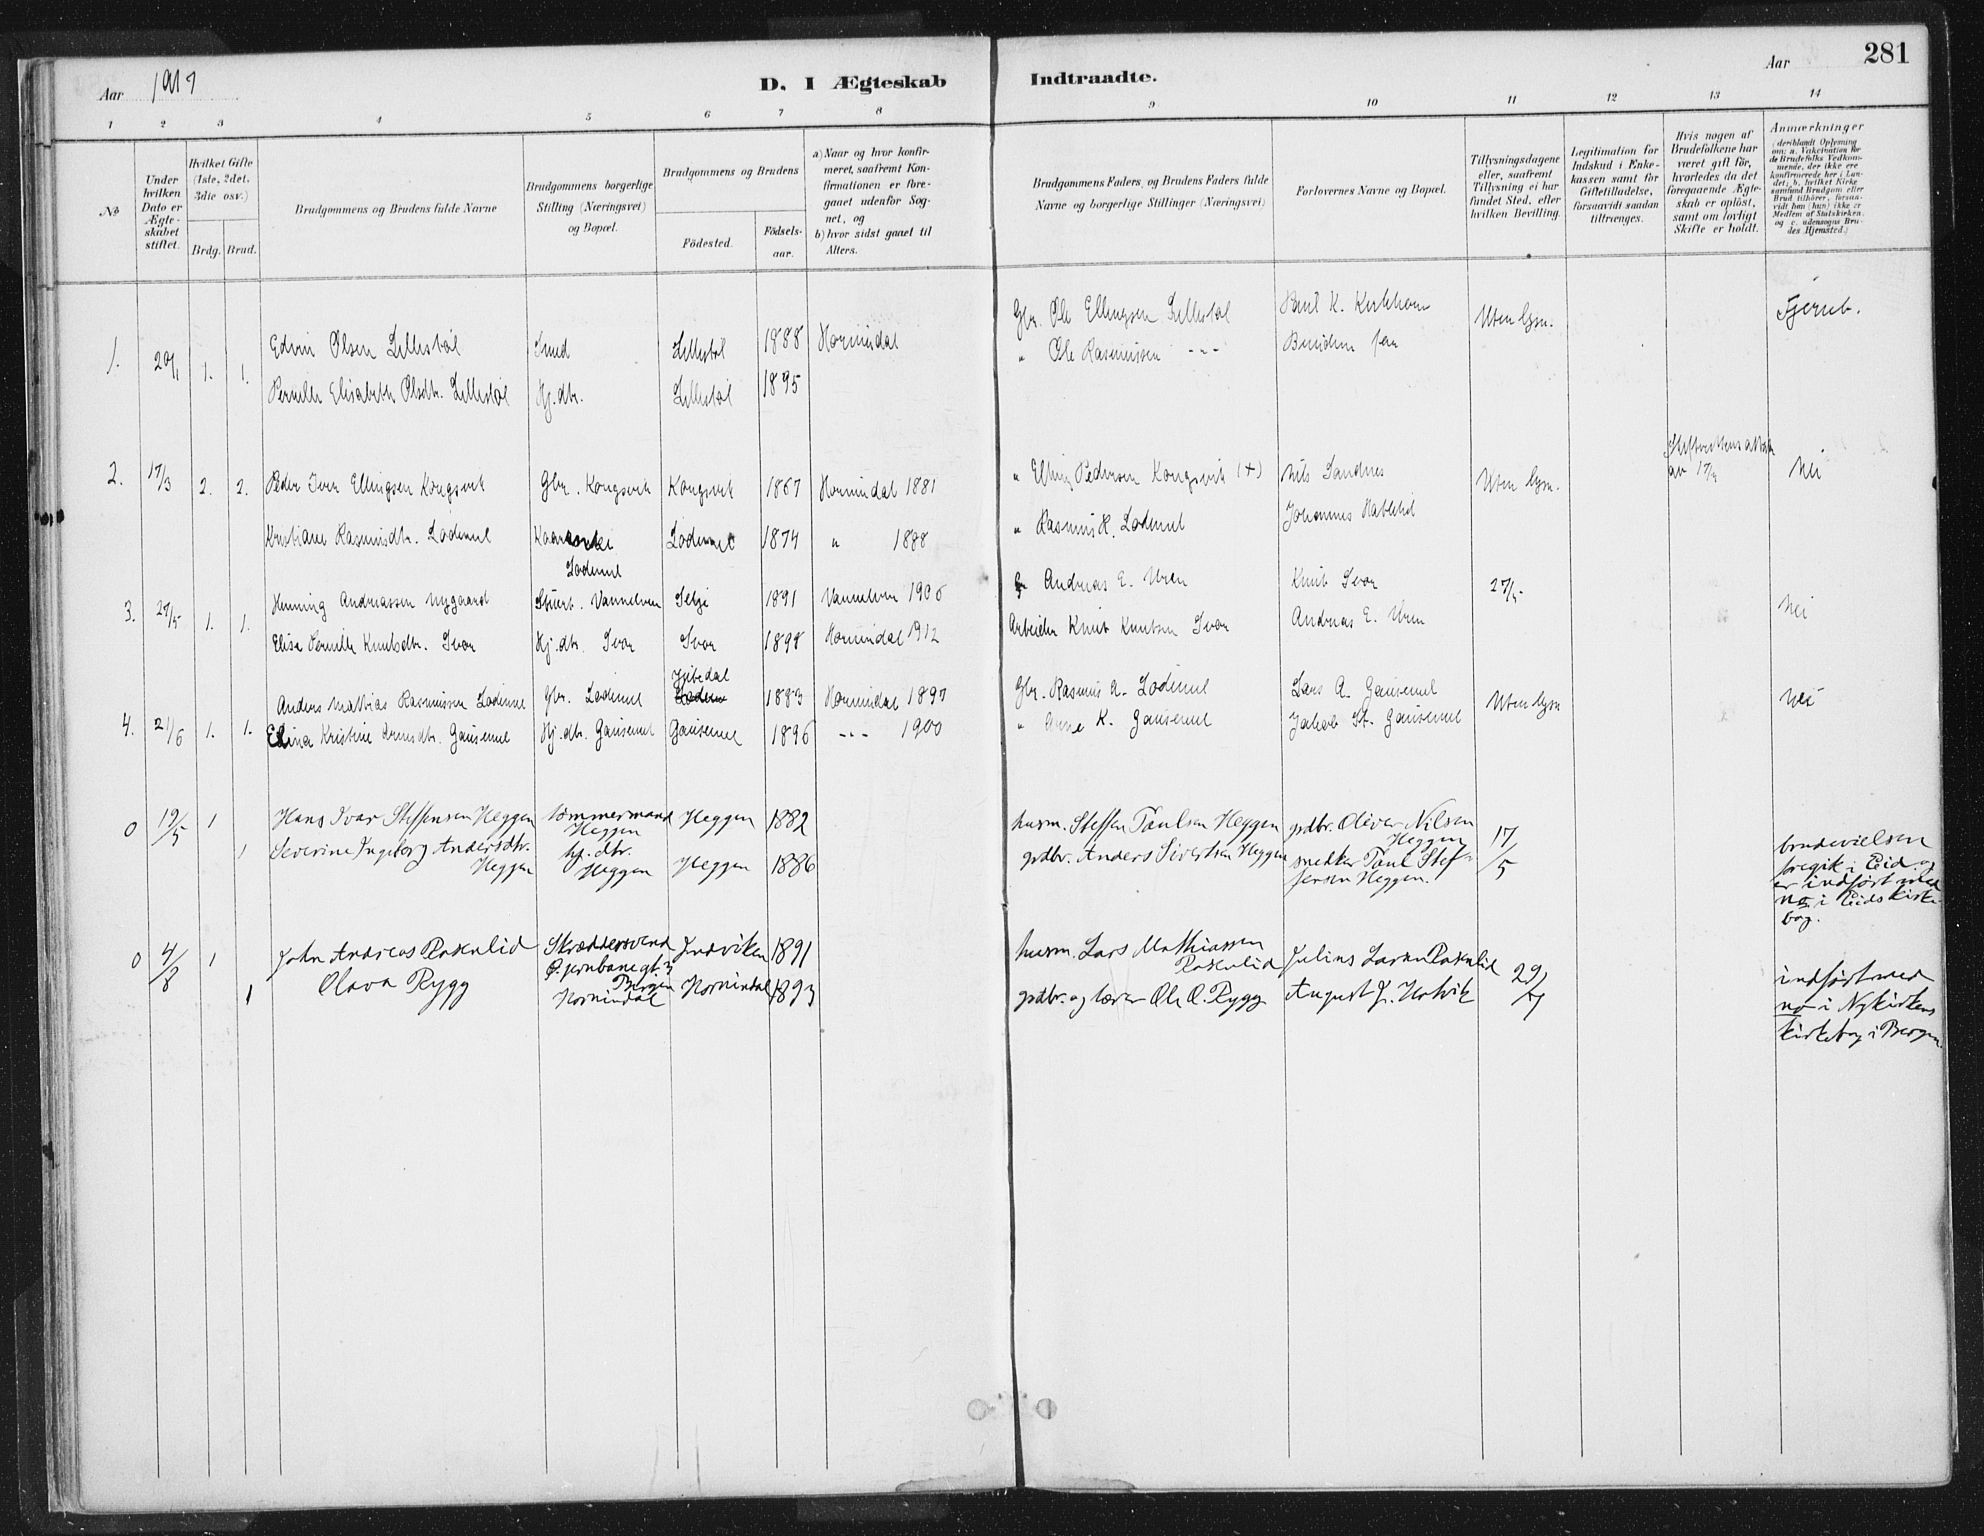 Aar 1917 D. I Ægteskab Indtraadte. Aar 281
1 2 3 4 5 6 7 8 9 10 11 12 13 14
No
Under hvilken Dato er Ægteskabet stiftet.
Hvilket Gifte (1ste, 2det, 3die osv.)
Brdg. Brud.
Brudgommens og Brudens fulde Navne
Brudgommens borgerlige Stilling (Næringsvei) og Bopæl.
Brudgommens og Brudens
Fødested. Fødselsaar.
a) Naar og hvor konfirmeret, saafremt Konfirmationen er foregaaet udenfor Sognet, og
b) hvor sidst gaaet til Alters.
Brudgommens Faders og Brudens Faders fulde Navne og borgerlige Stillinger (Næringsvei)
Forlovernes Navne og Bopæl.
Tillysningsdagene eller, saafremt Tillysning ei har fundet Sted, efter hvilken Bevilling.
Legitimation for Indskud i Enkekassen samt for Giftetilladelse, forsaavidt saadan tiltrænges.
Hvis nogen af Brudefolkene har været gift før, hvorledes da det foregaaende Ægteskab er opløst, samt om lovligt Skifte er holdt.
Anmærkninger
(deriblandt Oplysning om: a. Vakcination for de Brudefolks Vedkommende, der ikke ere konfirmerede her i Landet; b. hvilket Kirkesamfund Brudgom eller Brud tilhører, forsaavidt han (hun) ikke er Medlem af Statskirken, og c. udensogns Brudes Hjemsted.)
1. 20/1 1. 1. Edvin Olsen Lillestøl Smed Lillestøl 1888 Hornindal Gbr. Ole Ellingsen Lillestøl Paul K. Kirkhorn Uten lysn. Fjerneb.
Pernille Elisabeth Olsdtr. Lillestøl Hj.dtr. Lillestøl 1895 " Ole Rasmussen -"- Brudens far
2. 17/3 2. 2. Peder Iver Ellingsen Kongsvik Gbr. Kongsvik Kongsvik 1867 Hornindal 1881 " Elling Pedersen Kongsvik (+) Nils Sandnes Uten lysn. Skifterettens attest av 17/3 Nei
Kristiane Rasmusdtr. Lødemel Lødemel Lødemel 1874 " 1888 " Rasmus H. Lødemel Johannes
3. 27/5 1. 1. Henning Andreassen Nygaard Stuert. Vannelven Selje 1891 Vannelven 1906 Andreas E. Uren Knut Svor 27/5 Nei
Elise Pernille Knutsdtr. Svor Hj.dtr. Svor Svor 1898 Hornindal 1912 Arbeider Knut Knutsen Svor Andreas E. Uren
4. 21/6 1. 1. Anders Mathias Rasmussen Lødemel Gbr. Lødemel 1883 Hornindal 1897 Gbr. Rasmus A. Lødemel Lars A. Gausemel Uten lysn Nei
Elina Kristine Arnesdtr. Gausemel Hj.dtr. Gausemel Gausemel 1896 -"- 1900 " Arne K. Gausemel Jakob St. Gausemel
0 19/5 1 Hans Ivar Steffensen Heggen tømmermand Heggen Heggen 1882 husm. Steffen Paulsen Heggen gdbr. Oliver Nilsen Heggen 17/5
1 Severine Ingeborg Andersdtr. Heggen hj.dtr. Heggen Heggen 1886 gdbr. Anders Sivertsen Heggen snedker Paul Steffensen Heggen.
brudevielsen foregik i Eid og er indført med no i Eids kirkebog.
0 4/8 1 John Andreas Raknlid Skræddersvend Ø.jernbanegt. 3 Bergen Indviken 1891 husm. Lars Mathiassen Raknlid Julius Larsen Raknlid 29/7
1 Olava Rygg Hornindal Hornindal 1893 gdbr. og lærer Ole O. Rygg August J. Holvik
indført med no i Nykirkens kirkebog i Bergen.